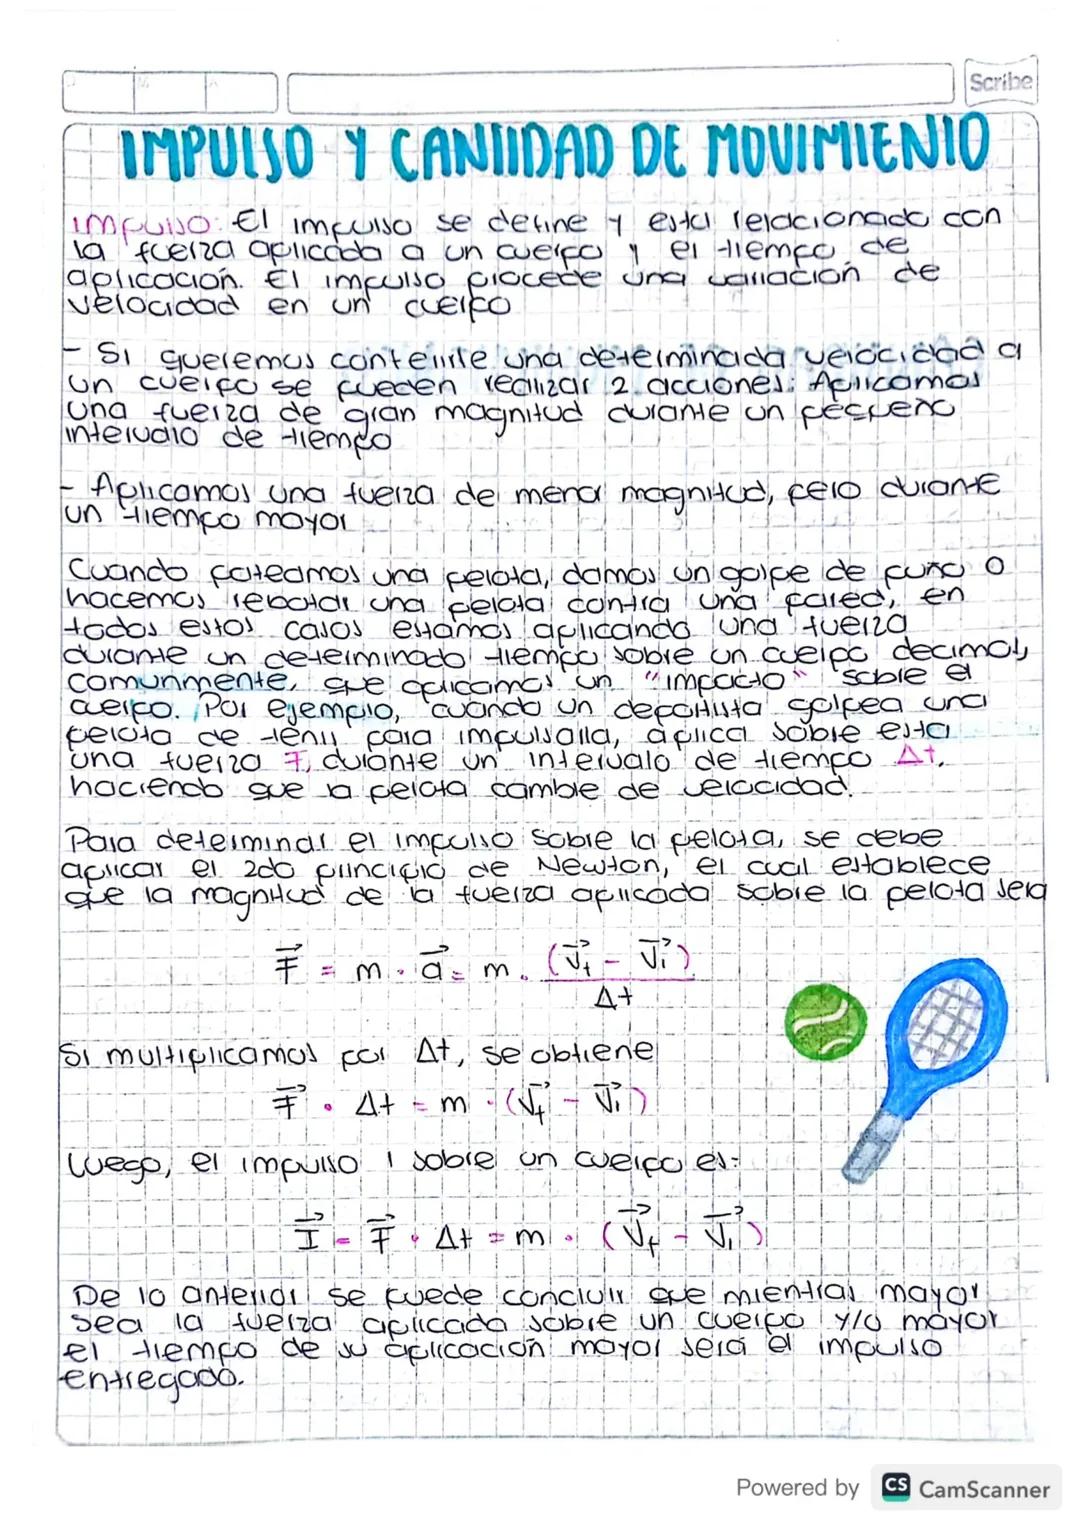 Scribe
IMPULSO Y CANTIDAD DE MOVIMIENTO
Impulso: El impulso se define y esta relacionado con
la fuerza aplicada a un cuerpo y el tiempo de
aplicación. El impulso procede una variación de
velocidad en un cuerpo
- Si queremos conferirle una determinada velocidad a
un cuerpo se pueden realizar 2 acciones: Aplicamos
una fuerza de gran magnitud durante un pequeño
intervalo de tiempo
- Aplicamos una fuerza de menor magnitud, pero durante
un tiempo mayor
Cuando pateamos una pelota, damos un golpe de puño o
hacemos rebotar una pelota contra una pared, en
todos estos casos estamos aplicando una fuerza
durante un determinado tiempo sobre un cuerpo decimos,
comunmente, que aplicamos un "impacto" sobre el
cuerpo. Por ejemplo, cuando un deportista golpea una
pelota de tenis para impulsarla, aplica sobre esta
una fuerza F, durante un intervalo de tiempo Δt,
haciendo que la pelota cambie de velocidad.
Para determinar el impulso sobre la pelota, se debe
aplicar el 2do principio de Newton, el cual establece
que la magnitud de la fuerza aplicada sobre la pelota sera
F⃗ = m · a⃗ = m · (V⃗f - V⃗i)
Δt
Si multiplicamos por Δt, se obtiene
F⃗ · Δt = m · (V⃗f - V⃗i)
Luego, el impulso I sobre un cuerpo es:
I⃗ = F⃗ · Δt = m · (V⃗f - V⃗i)
De lo anterior se puede concluir que mientras mayor
sea la fuerza aplicada sobre un cuerpo y/o mayor
el tiempo de su aplicación mayor será el impulso
entregado.
Powered by CS CamScanner